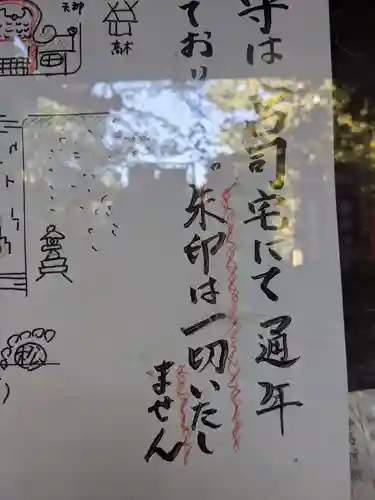 守は宮司宅にて通年
ており
朱印は一切いたし
ません
高床
松